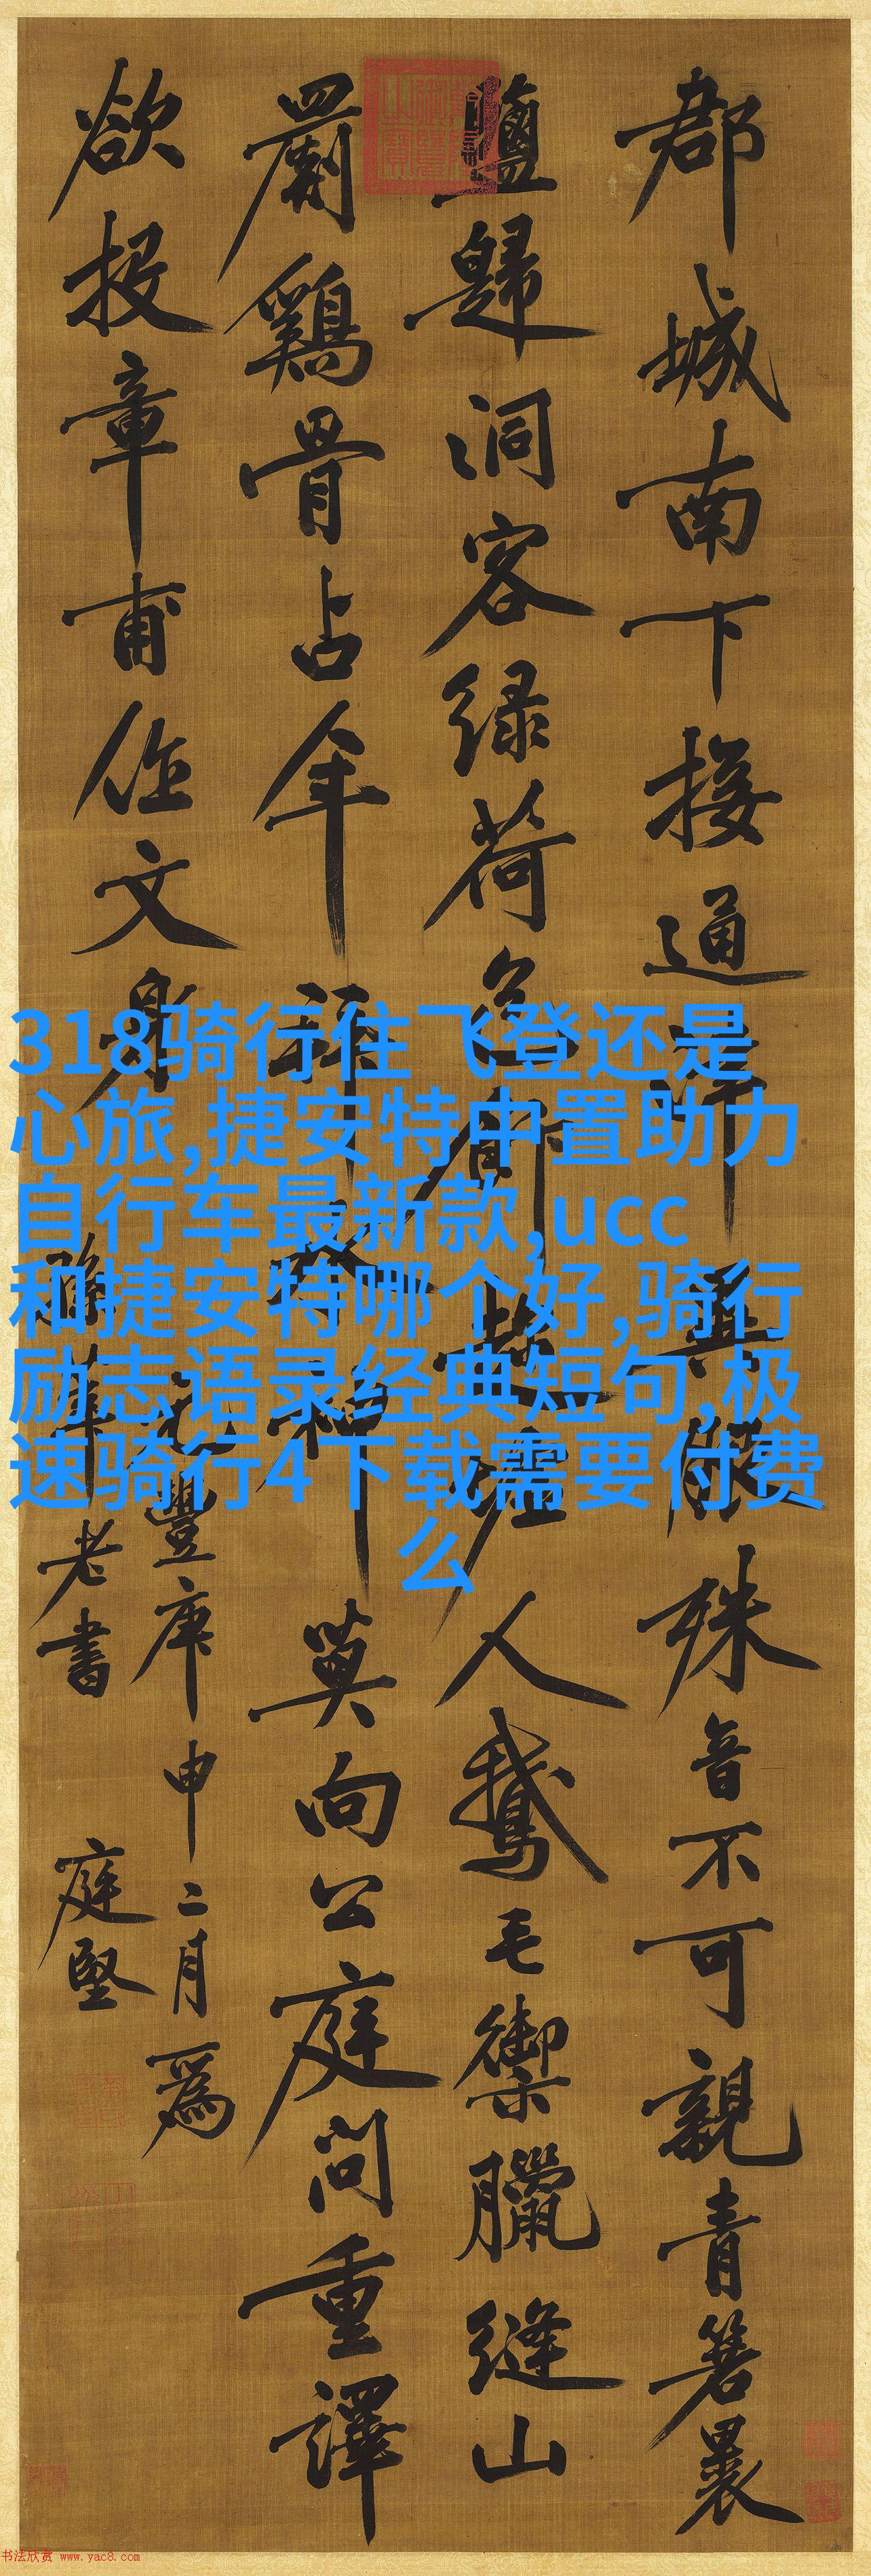 郡城南下接通津異服殊音不可親青箬裹
鹽歸洞客緑荷包飯趁墟人鵝毛禦臘縫山
罽鷄骨占年拜神莫向公庭問重譯
欲投章甫作文身
元豐庚申二月為
華老書 庭堅
318骑行住飞登还是
心旅,捷安特中置助力
自行车最新款,ucc
和捷安特哪个好,骑行
励志语录经典短句,极
速骑行4下载需要付费
么
书法欣赏 www.yac8.com